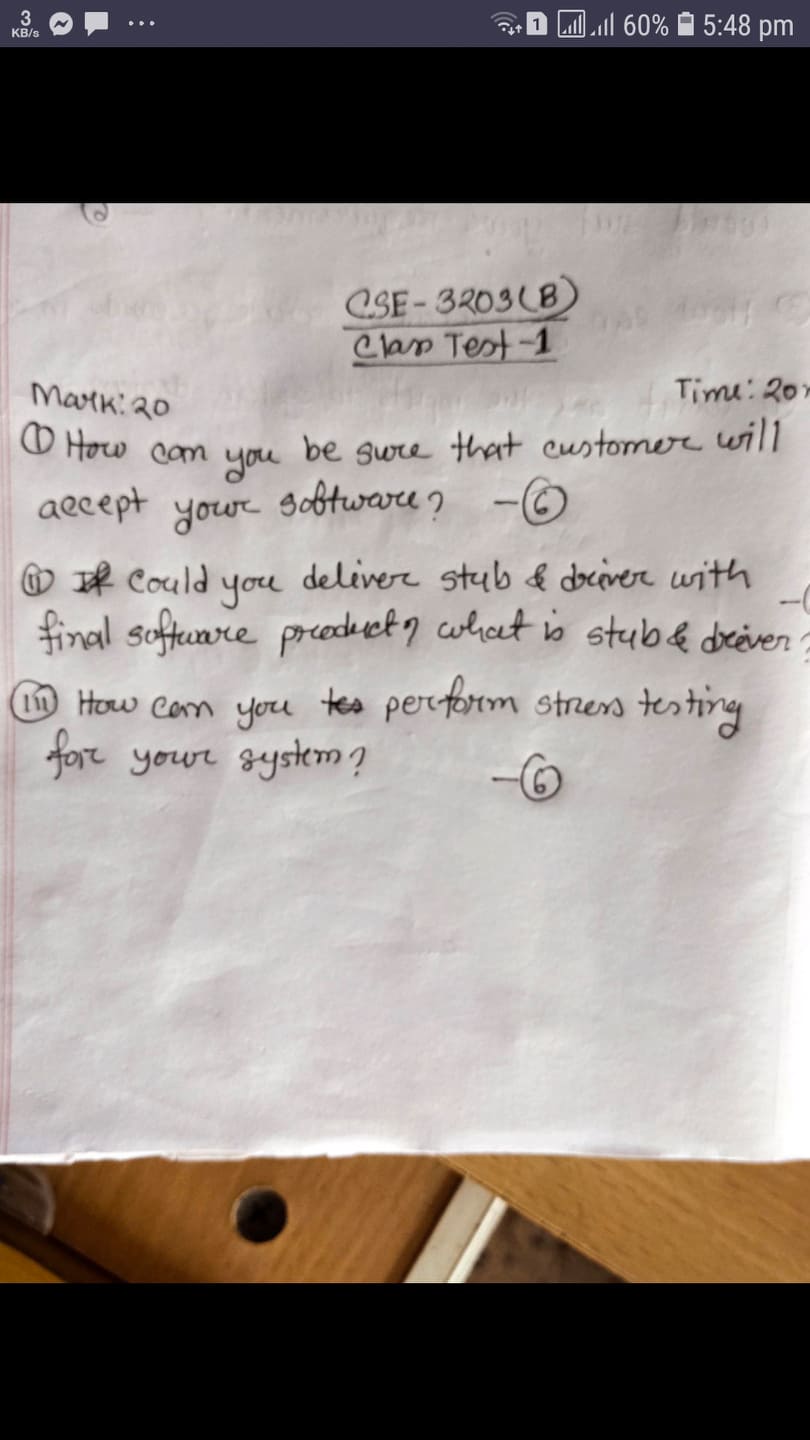 3
KB/s
1
60%
5:48 pm
CSE-3203(B)
Class Test-1
Mark: 20
Time: 20
① How can you be sure that customer will
accept your software? -⑥
ⅱ Could you deliver stub & driver with
final software product? what is stub & driver?
ⅲ How can you perform stress testing
for your system? -⑥